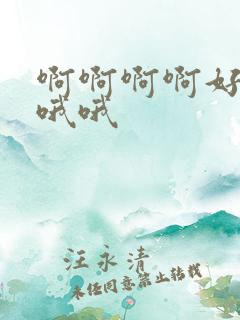 啊啊啊啊好
哦哦
汪永清
未经同意禁止转载